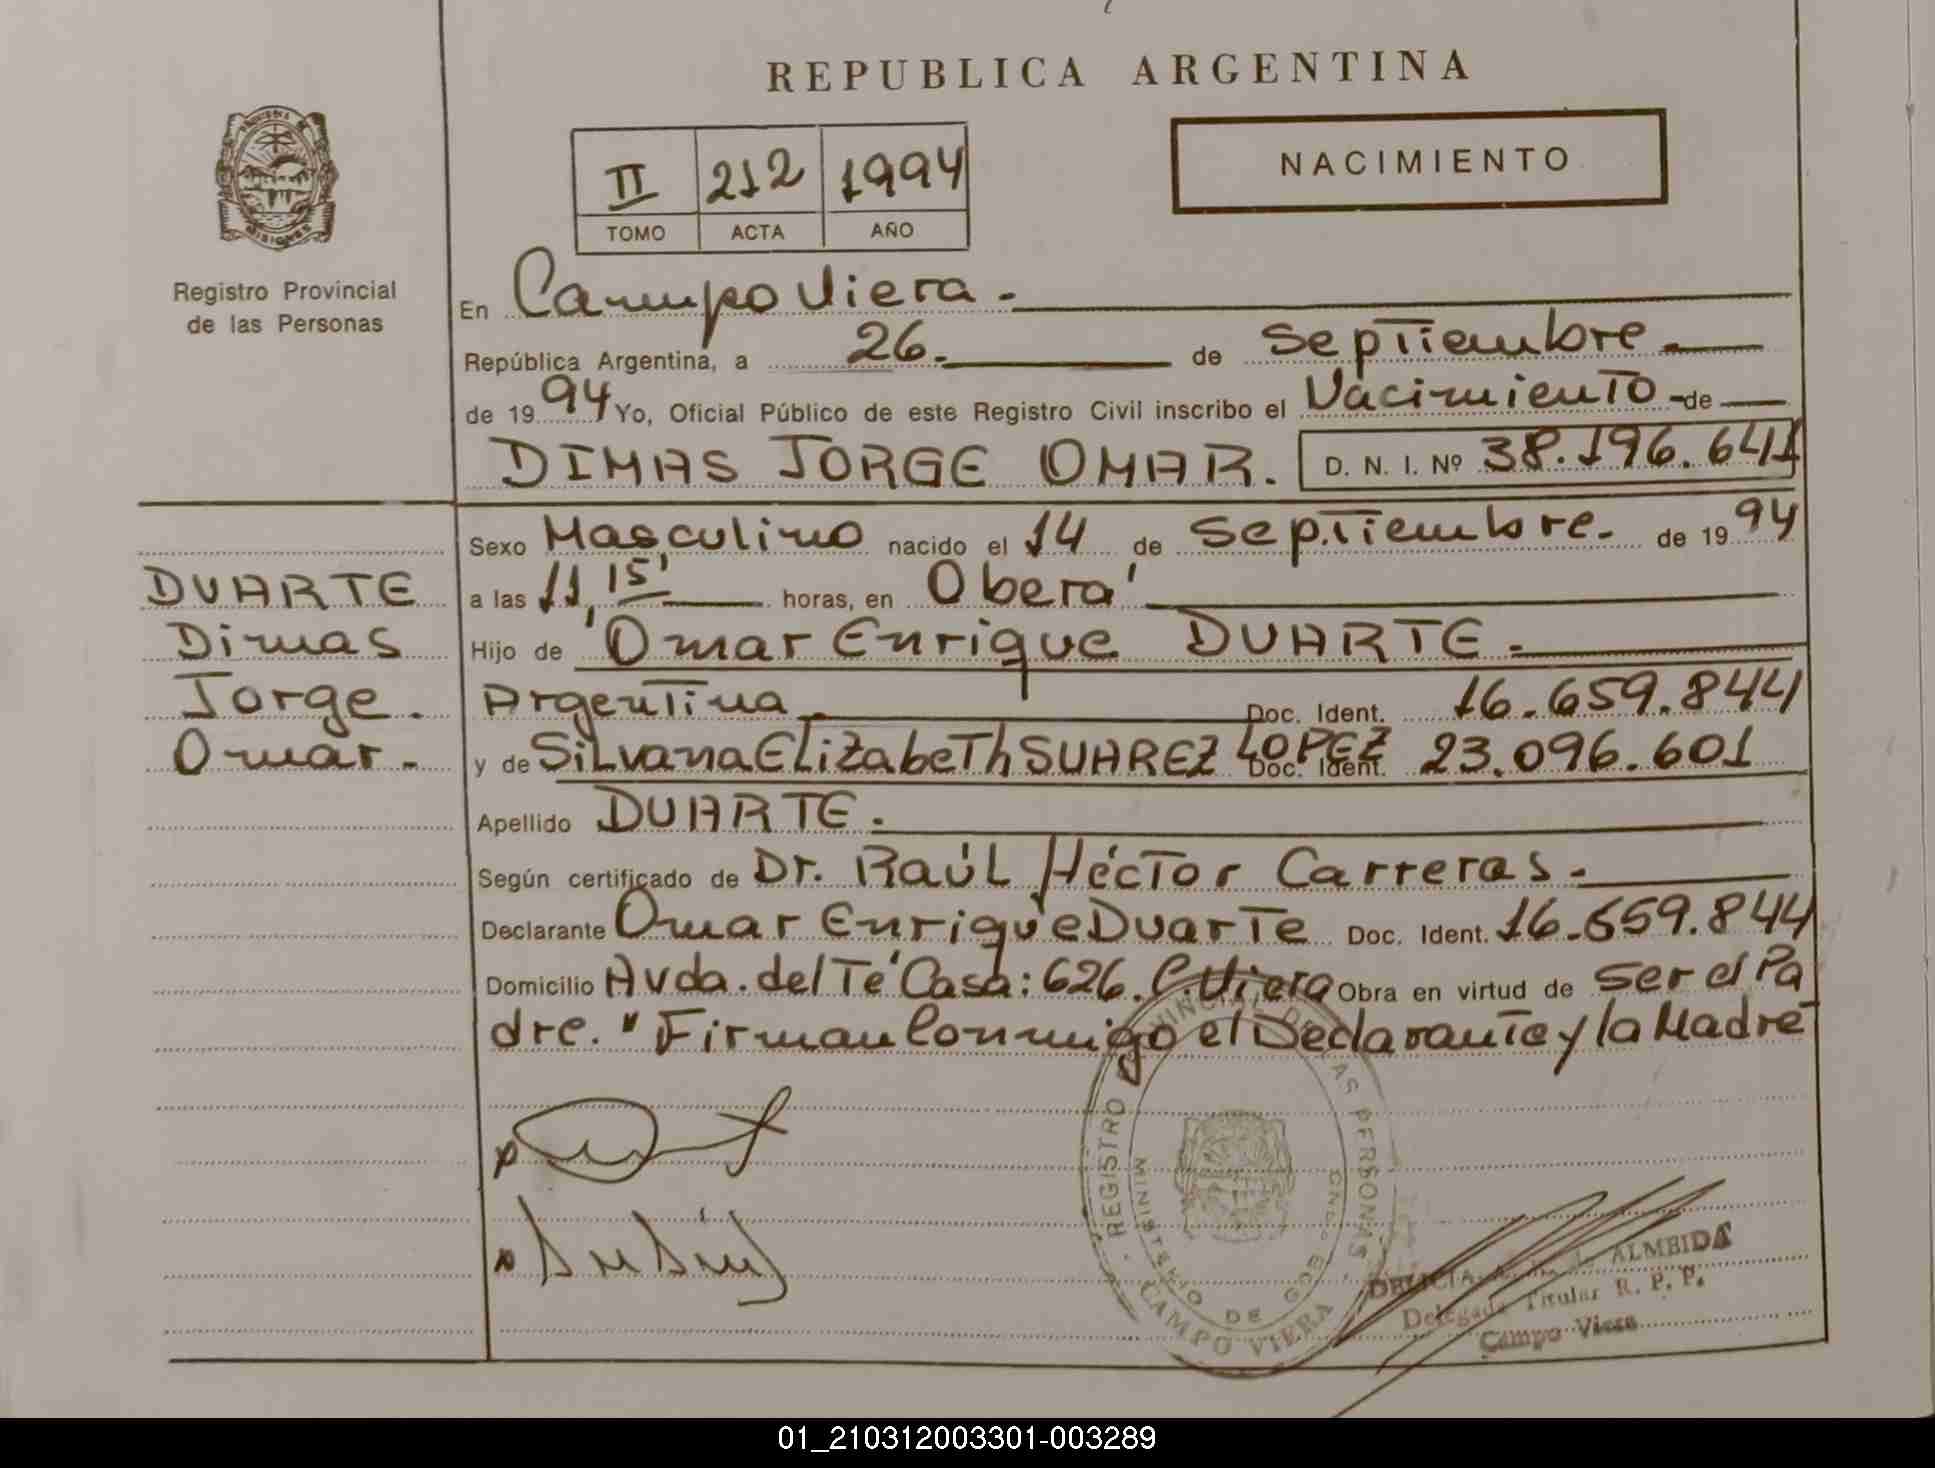 REPUBLICA ARGENTINA
NACIMIENTO
II 212 1994
TOMO ACTA AÑO
MISIONES
Registro Provincial
de las Personas
En Campo Viera.
República Argentina, a 26. de Septiembre
de 1994 Yo, Oficial Público de este Registro Civil inscribo el Nacimiento de
DIMAS JORGE OMAR. D. N. I. Nº 38.196.641
Sexo Masculino nacido el 14 de Septiembre. de 1994
a las 11,15' horas, en Oberá
Hijo de Omar Enrique DUARTE.
Argentina Doc. Ident. 16.659.844
y de Silvana Elizabeth SUAREZ LOPEZ Doc. Ident. 23.096.601
Apellido DUARTE.
Según certificado de Dr. Raúl Héctor Carreras.
Declarante Omar Enrique Duarte Doc. Ident. 16.659.844
Domicilio Avda. del Té Casa: 626. C. Viera Obra en virtud de ser el Pa
dre. "Firman Conmigo el Declarante y la Madre"
DUARTE
Dimas
Jorge.
Omar.
REGISTRO PROVINCIAL DE LAS PERSONAS
MINISTERIO DE GOB
CAMPO VIERA
DELICIA ALMEIDA
Delegada Titular R. P. P.
Campo Viera
01_210312003301-003289